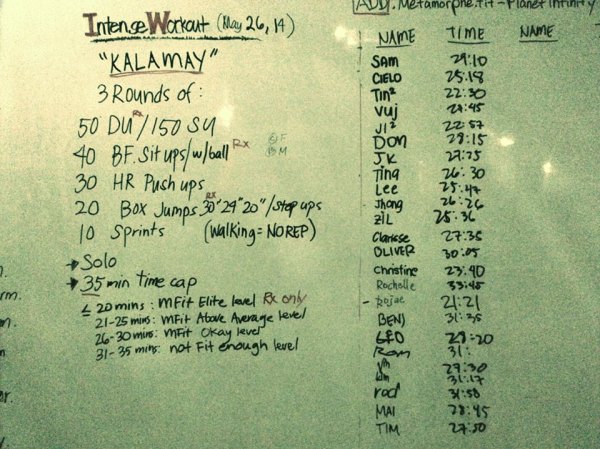 Intense Workout (May 26, 14)
"KALAMAY"
3 Rounds of:
50 DU Rx/150 SU
40 BF. Sit ups/w/ball Rx
30 HR Push ups
20 Box Jumps Rx 30" 24" 20"/Step ups
10 Sprints (Walking = NO REP)
Solo
35 min Time cap
≤ 20 mins: MFit Elite level Rx only
21-25 mins: MFit Above Average level
26-30 mins: MFit Okay level
31-35 mins: not Fit enough level
ADD: Metamorphe.fit - Planet Infinity
NAME TIME NAME
SAM 29:10
CIELO 25:18
Tin² 22:30
Vuj 27:45
Ji² 22:57
DON 28:15
JK
Ting 26:30
Lee 25:47
Jhong 26:26
ZIL 25:36
Clarisse 27:35
OLIVER 30:05
Christine 23:40
Rochelle 33:45
21:21
BENJ 31:35
GEO 29:20
Rom 31:
27:30
31:17
rod 31:50
MAI 28:45
TIM 27:50